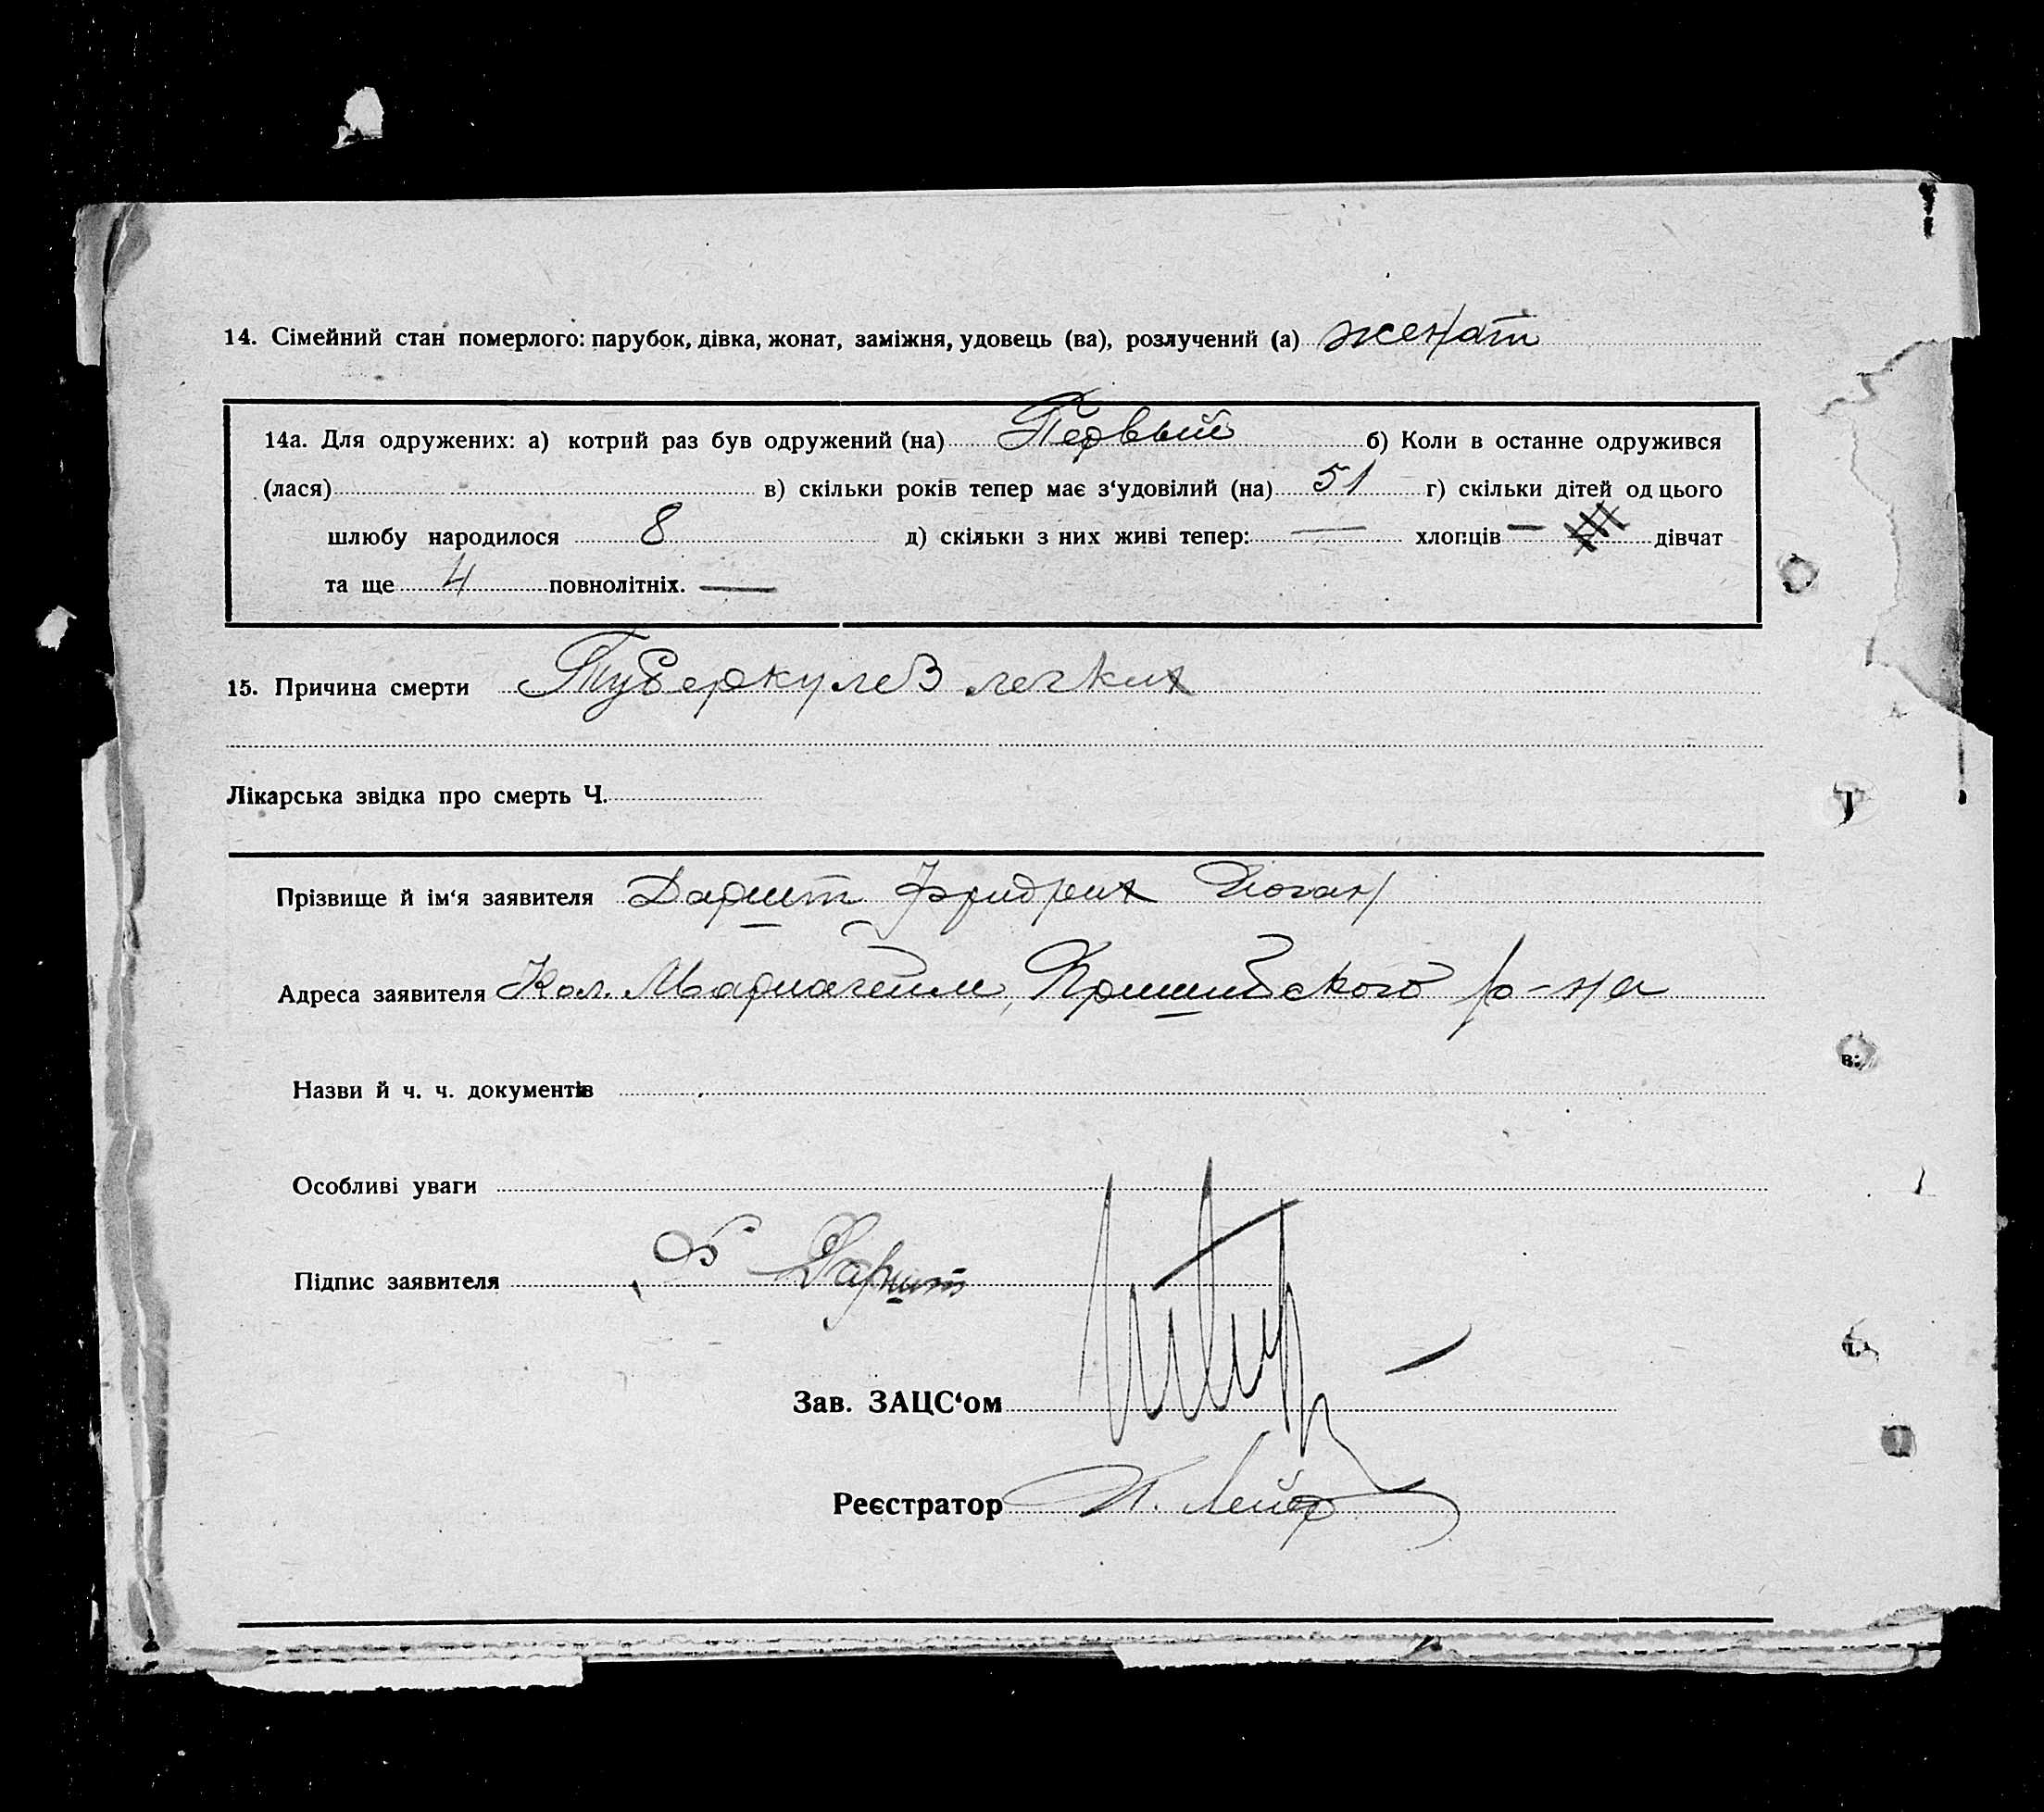 14. Сімейний стан померлого: парубок, дівка, жонат, заміжня, удовець (ва), розлучений (а) женат
14а. Для одружених: а) котрий раз був одружений (на) Первый б) Коли в останне одружився
(лася) в) скільки років тепер має з‘удовілий (на) 51 г) скільки дітей од цього
шлюбу народилося 8 д) скільки з них живі тепер: — хлопців — дівчат
та ще 4 повнолітніх. —
15. Причина смерти Туберкулез легких
Лікарська звідка про смерть Ч.
Прізвище й ім‘я заявителя Даршт Фридрих Иоган
Адреса заявителя Кол. Мариагейм, Пришибского р-на
Назви й ч. ч. документів
Особливі уваги
Підпис заявителя Ф Даршт
Зав. ЗАЦС‘ом
Реєстратор Лейер